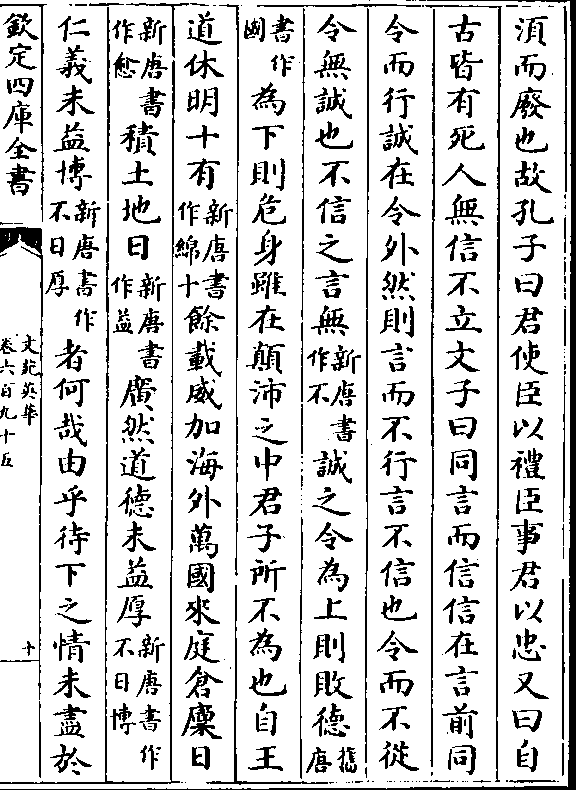 須而廢也故孔子曰君使臣以禮臣事君以忠又曰自
古皆有死人無信不立文子曰同言而信信在言前同
令而行誠在令外然則言而不行言不信也令而不從
令無誠也不信之言無新唐書作不誠之令為上則敗德舊唐
書作國為下則危身雖在顛沛之中君子所不為也自王
道休明十有新唐書作綿十餘載威加海外萬國來庭倉廩日
新唐書作愈積土地日新唐書作益廣然道德未益厚新唐書作不日博
仁義未益博新唐書作不日厚者何哉由乎待下之情未盡於
欽定四庫全書
文苑英華
卷六百九十五
十